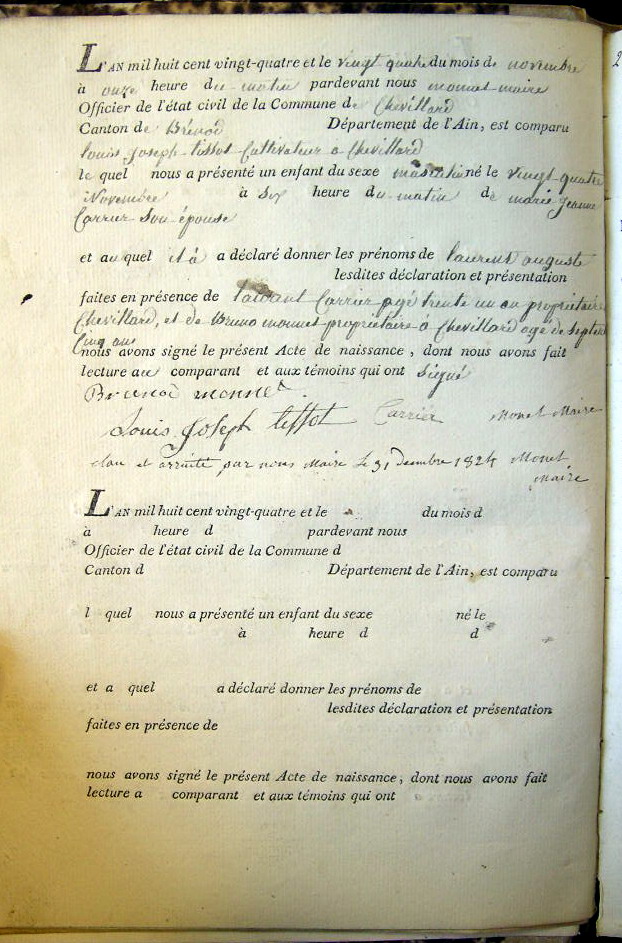 L'AN mil huit cent vingt-quatre et le vingt quatre du mois de novembre
à onze heure du matin pardevant nous monnet maire
Officier de l'état civil de la Commune de Chevillard
Canton de Brénod Département de l'Ain, est comparu
louis Joseph tissot Cultivateur a Chevillard
le quel nous a présenté un enfant du sexe masculin né le vingt quatre
Novembre à six heure du matin de marie Jeanne
Carrier son épouse
et au quel il a a déclaré donner les prénoms de laurent auguste
lesdites déclaration et présentation
faites en présence de laurant Carrier agé trente un an propriétaire
Chevillard, et de Bruno monnet propriétaire à Chevillard agé de
cinq ans
nous avons signé le présent Acte de naissance, dont nous avons fait
lecture au comparant et aux témoins qui ont signé
monnet
Louis Joseph tissot Carrier Monet Maire
clau et par nous Maire Le 31 1824 Monet
Maire
L'AN mil huit cent vingt-quatre et le du mois d
à heure d pardevant nous
Officier de l'état civil de la Commune d
Canton d Département de l'Ain, est comparu
l quel nous a présenté un enfant du sexe né le
à heure d d
et a quel a déclaré donner les prénoms de
lesdites déclaration et présentation
faites en présence de
nous avons signé le présent Acte de naissance, dont nous avons fait
lecture a comparant et aux témoins qui ont
2